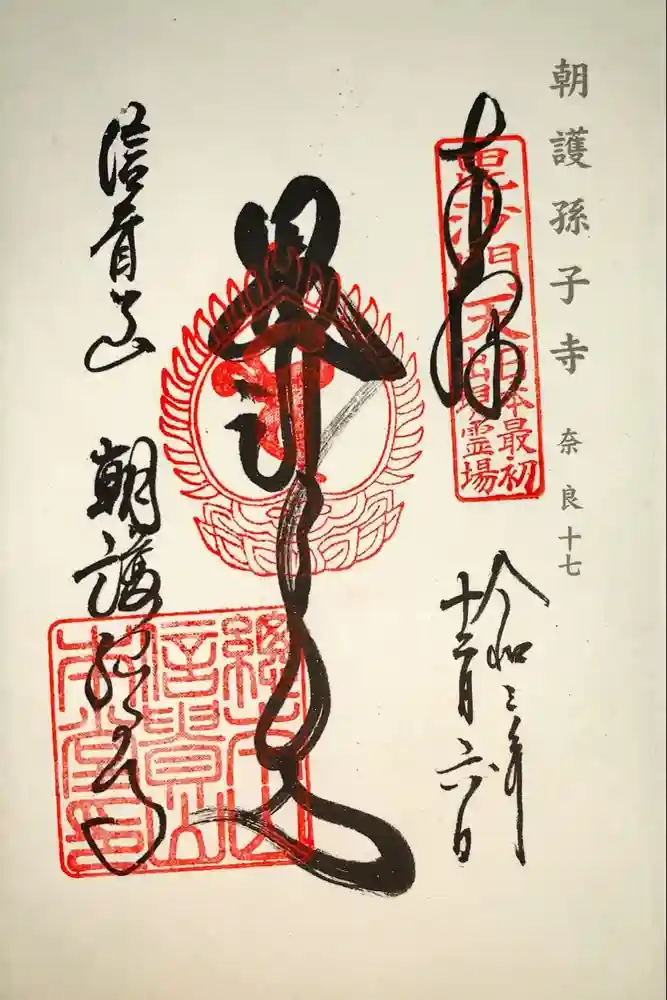 朝護孫子寺 奈良十七
奉拝
毘沙門天
日本最初
出現霊場
令和三年
十二月六日
信貴山 朝護孫子寺
總本山
信貴山
本堂印